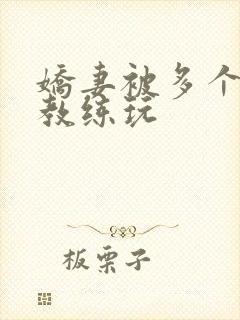 嬌妻被多个
教练玩
板栗子